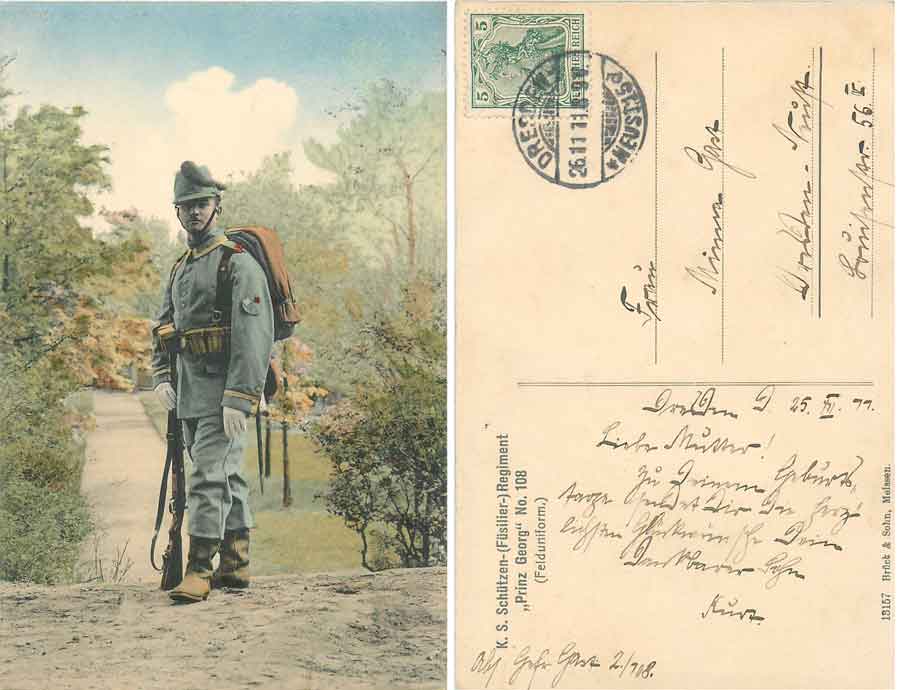 5 5
DEUTSCHES REICH
5 5
DRESDEN
26.11.11
Frau
Minna Gast
Dresden-Neust.
Louisenstr. 56 II.
K. S. Schützen-(Füsilier-)Regiment
„Prinz Georg“ No. 108
(Felduniform.)
Dresden d. 25. XI. 11.
Liebe Mutter!
Zu Deinem Geburts-
tage sendet Dir die herz-
lichsten Glückwünsche Dein
Dankbarer Sohn
Kurt.
Abs. Gefr. Gast 2./108.
13157 Brück & Sohn, Meissen.